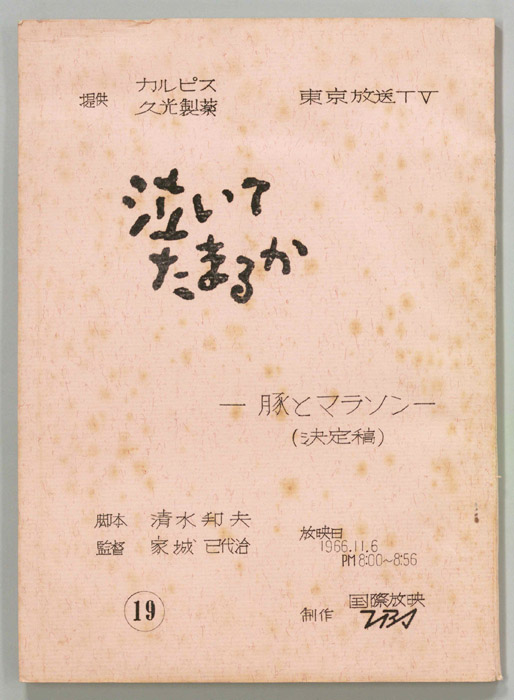 提供 カルピス
久光製薬
東京放送TV
泣いて
たまるか
― 豚とマラソン ―
(決定稿)
脚本 清水邦夫
監督 家城巳代治
放映日
1966.11.6
PM8:00~8:56
19
制作 国際放映
TBS